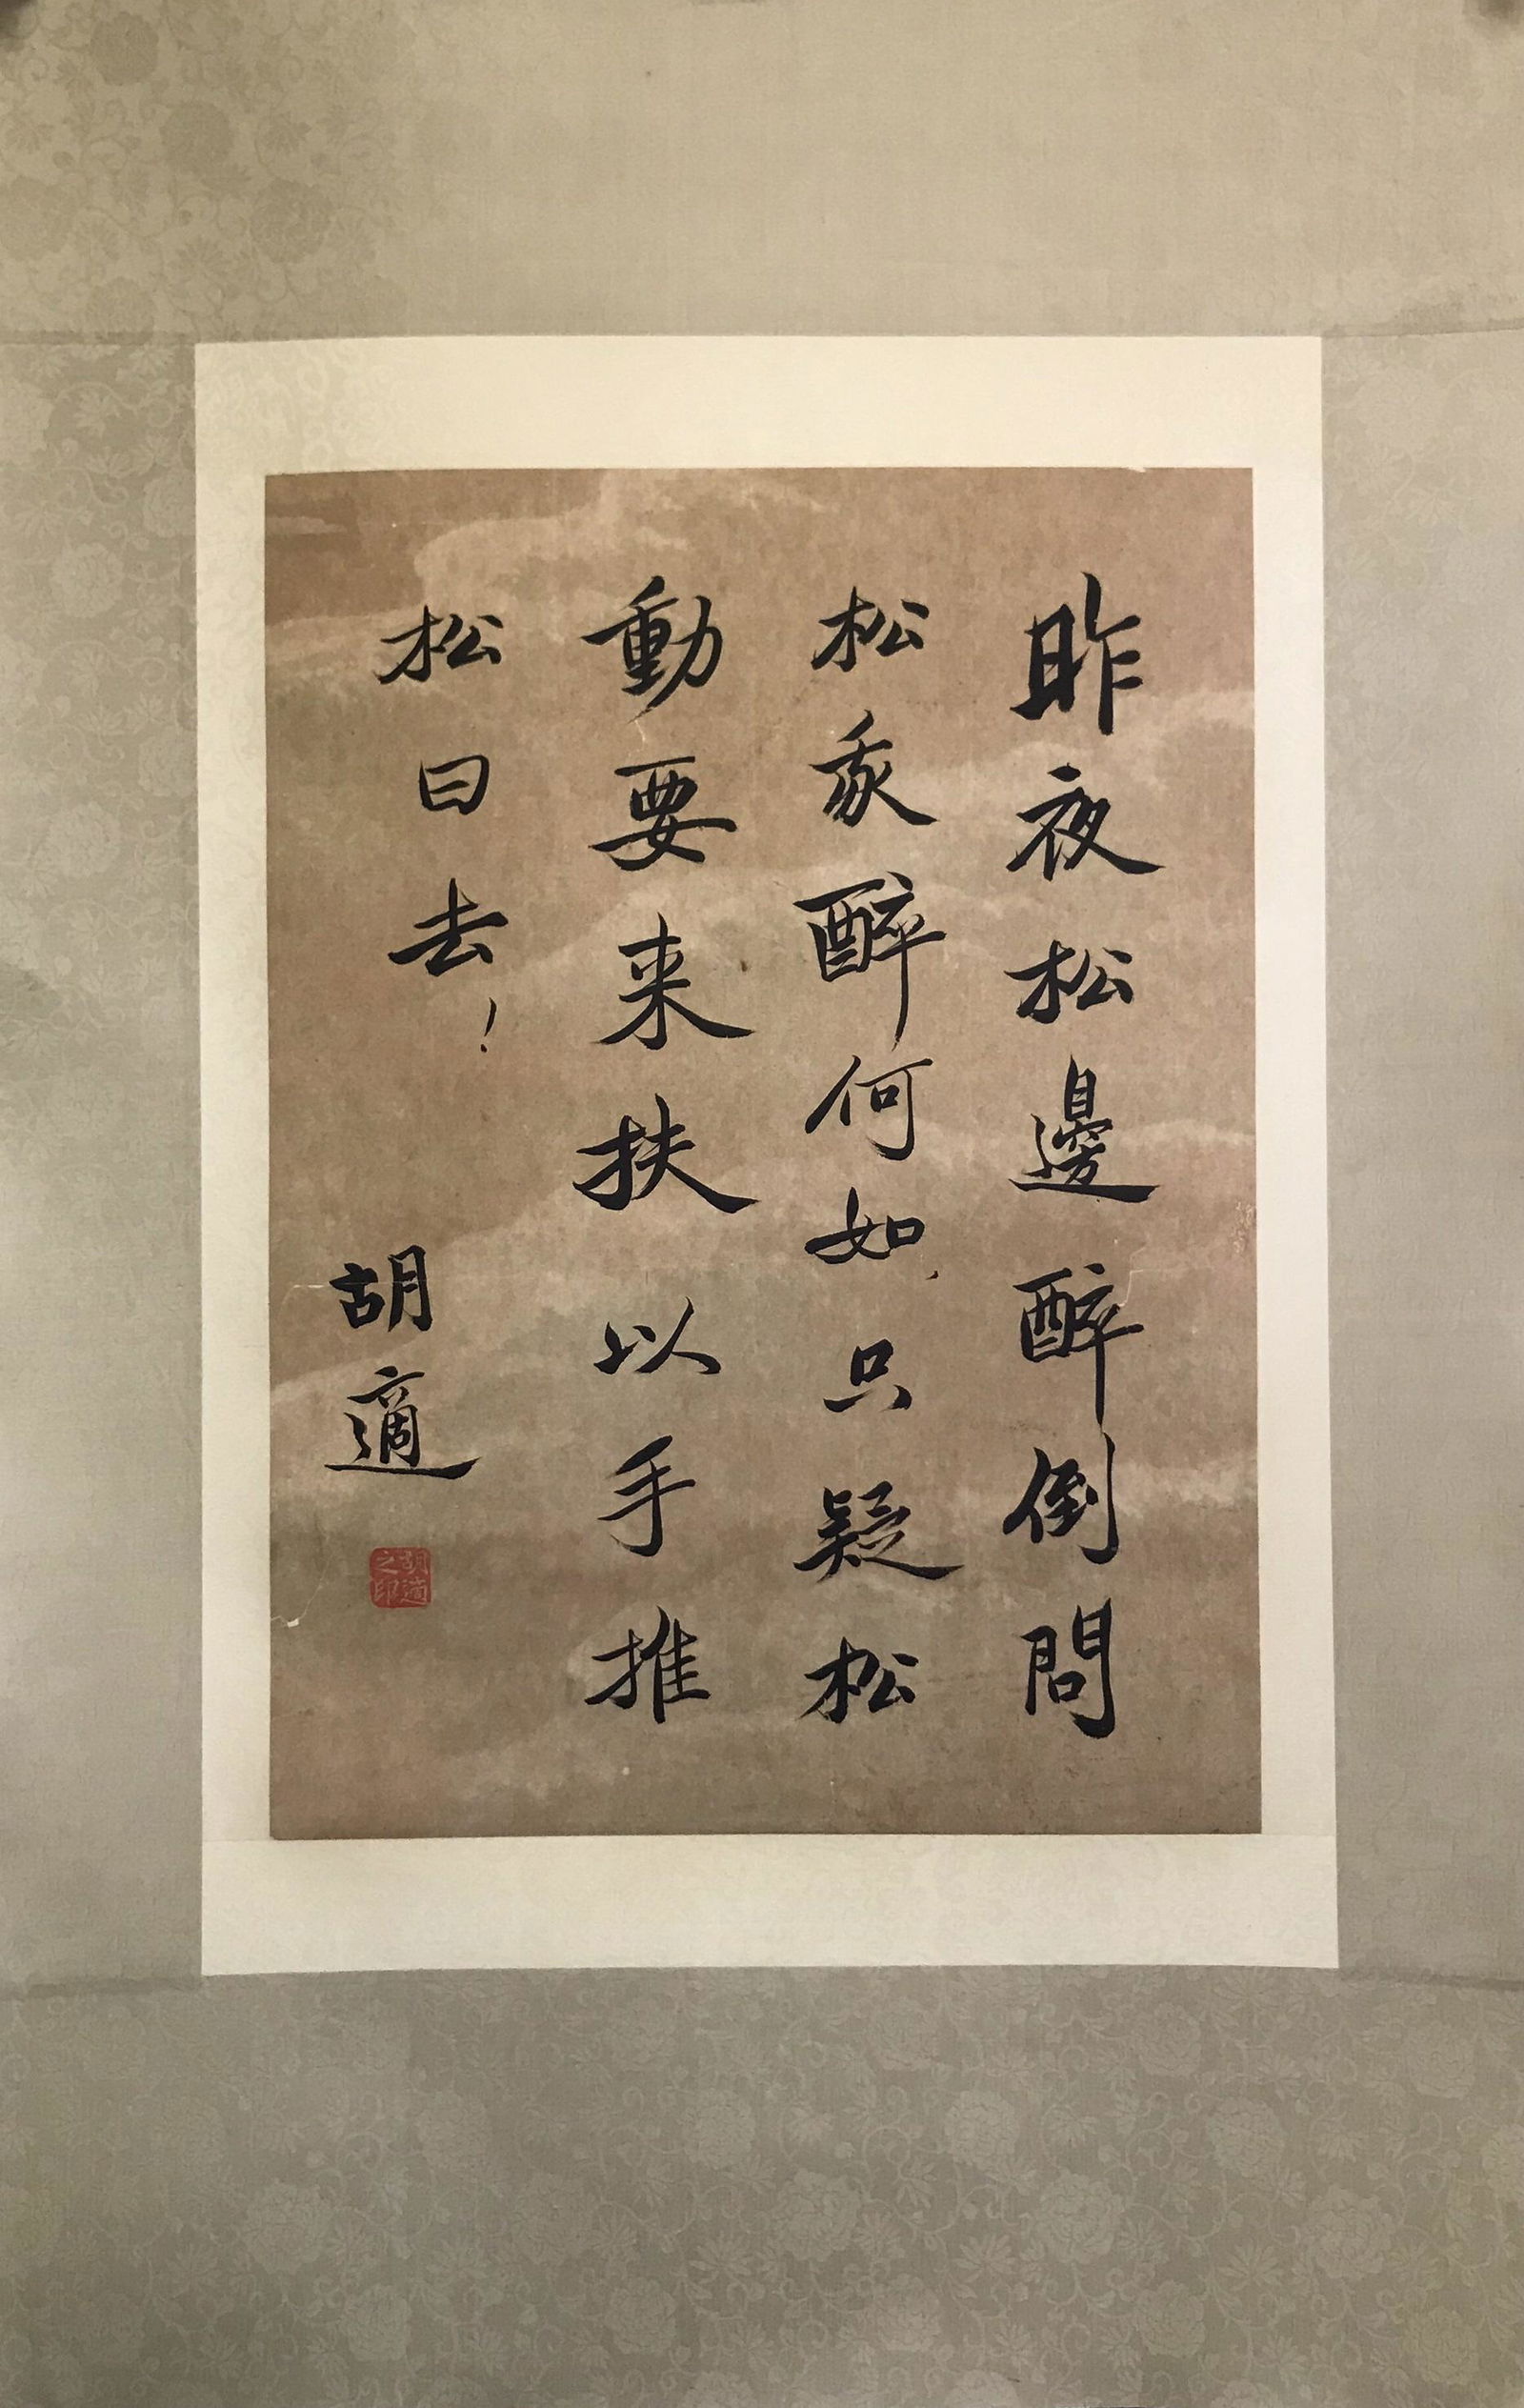 昨夜松邊醉倒問
松我醉何如、只疑松
動要来扶以手推
松曰去！
胡適
胡適之印